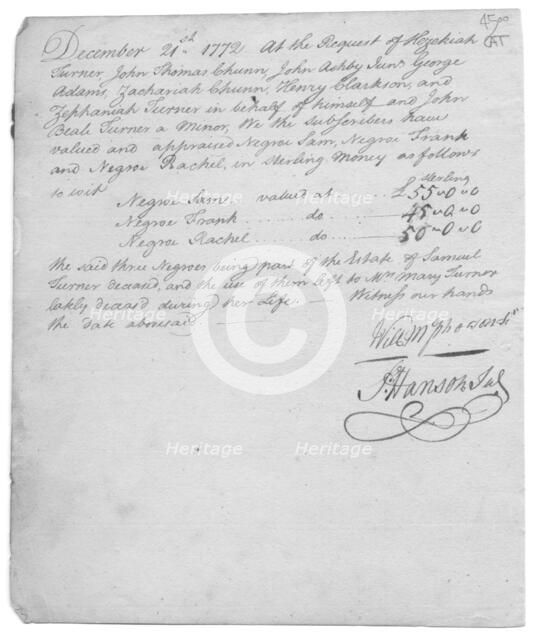 4500
CAT
December 21st 1772 At the Request of Hezekiah
Turner, John Thomas Chunn, John Ashby Junr George
Adams, Zachariah Chunn, Henry Clarkson, and
Zephaniah Turner in behalf of himself and John
Beale Turner a Minor, We the subscribers have
valued and appraised Negroe Sam, Negroe Frank
and Negroe Rachel, in sterling Money as follows
to wit
Sterling
Negroe Sam valued at £55"0"0
Negroe Frank ........ do ... 45"0"0
Negroe Rachel ....... do ... 50"0"0
the said three Negroes being part of the Estate of Samuel
Turner deceased, and the use of them left to Mrs Mary Turner
lately deceased during her Life. Witness our hands
the Date aforesaid
Will McPherson Jr
S. Hanson
Heritage Heritage Heritage
Heritage
Heritage Heritage Heritage